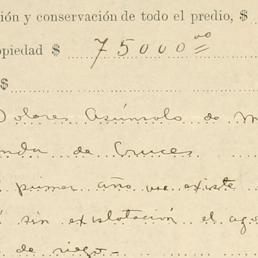 ión y conservación de todo el predio, $
opiedad $ 75000.00
$
Dolores Asúnsolo de M
nda de Cruces
primer año no existe
sin explotación el ago
de riego.